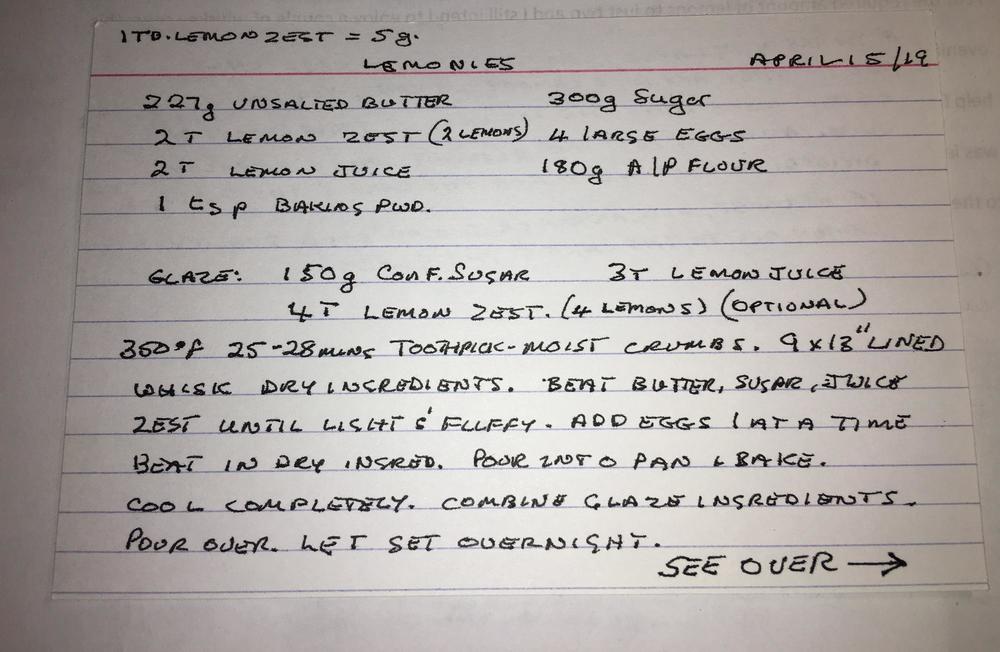 1TB. LEMON ZEST = 5g.
LEMONIES APRIL 15/19
227g UNSALTED BUTTER 300g Sugar
2T LEMON ZEST (2 LEMONS) 4 LARGE EGGS
2T LEMON JUICE 180g A/P FLOUR
1 tsp BAKING PWD.
GLAZE: 150g CONF. SUGAR 3T LEMON JUICE
4T LEMON ZEST. (4 LEMONS) (OPTIONAL)
350°F 25-28 MINS TOOTHPICK-MOIST CRUMBS. 9x13" LINED
WHISK DRY INGREDIENTS. BEAT BUTTER, SUGAR, JUICE
ZEST UNTIL LIGHT & FLUFFY. ADD EGGS 1 AT A TIME
BEAT IN DRY INGRED. POUR INTO PAN & BAKE.
COOL COMPLETELY. COMBINE GLAZE INGREDIENTS.
POUR OVER. LET SET OVERNIGHT.
SEE OVER →